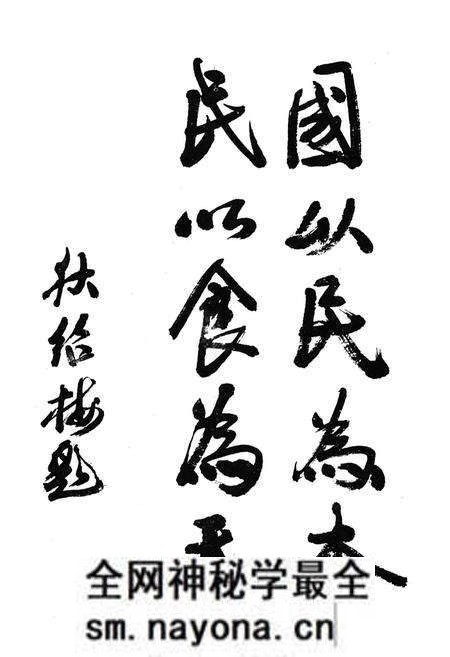 國以民為本
民以食為天
狄绍梅题
全网神秘学最全
sm.nayona.cn